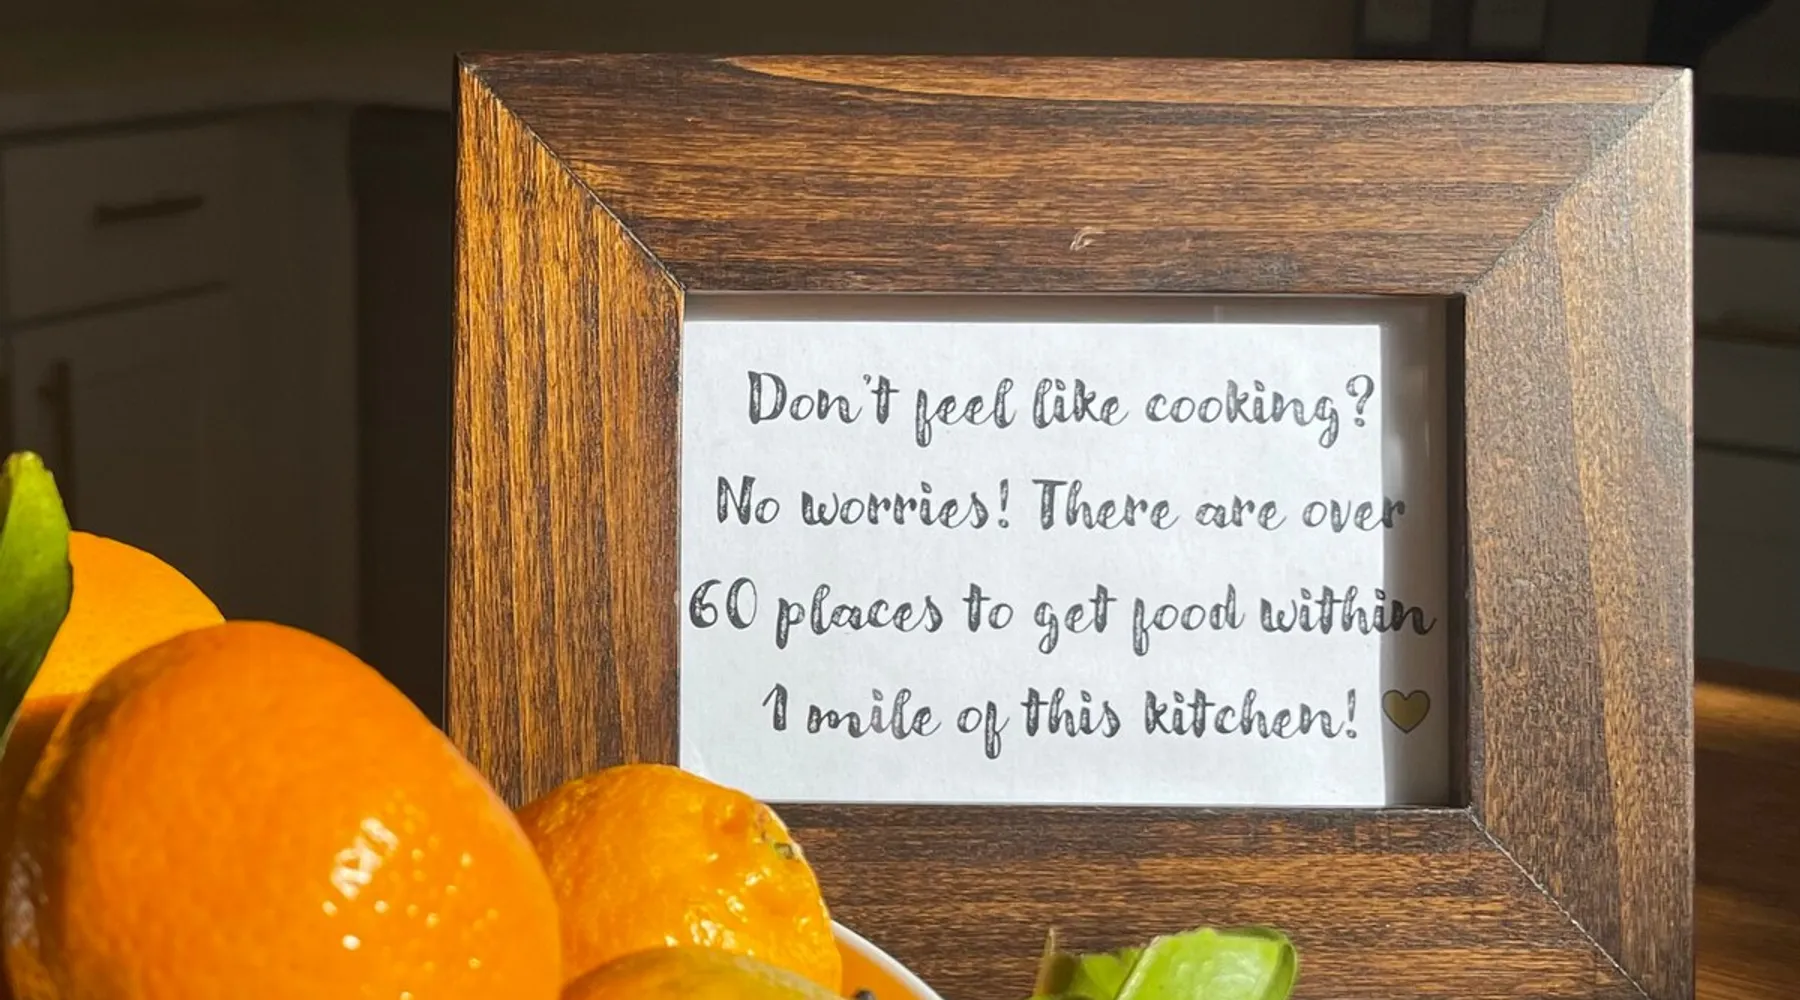 Don't feel like cooking?
No worries! There are over
60 places to get food within
1 mile of this kitchen! 💛